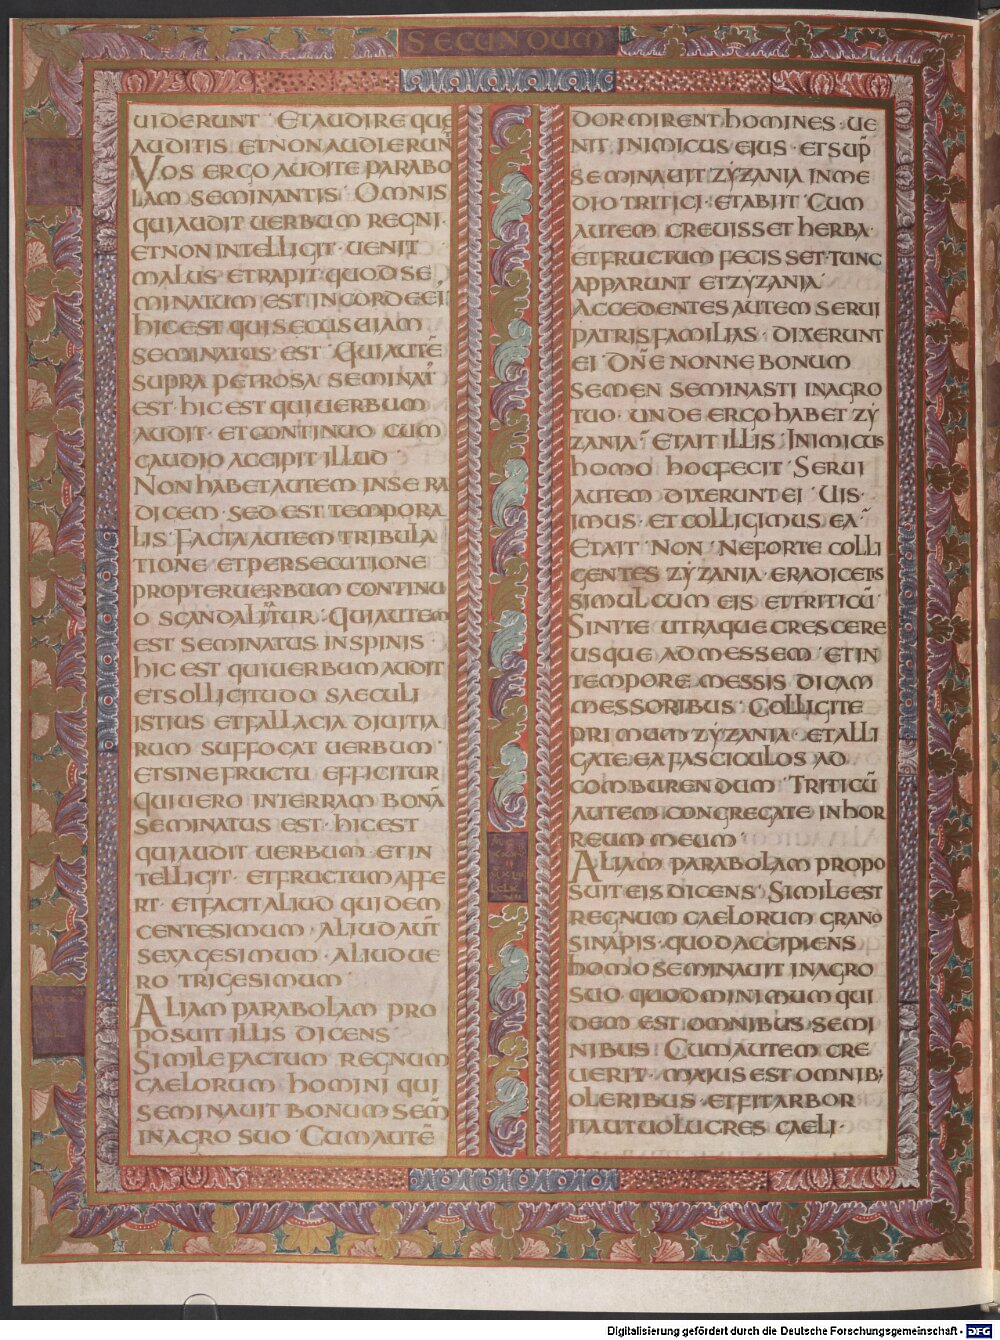 SECUNDUM
UIDERUNT · ET AUDIRE QUĘ
AUDITIS · ET NON AUDIERUN̄
VOS ERGO AUDITE PARABO
LAM SEMINANTIS · OMNIS
QUI AUDIT UERBUM REGNI ·
ET NON INTELLIGIT · UENIT
MALUS · ET RAPIT · QUOD SE
MINATUM EST IN CORDE EI
HIC EST QUI SECUS UIAM
SEMINATUS EST · QUI AUTĒ
SUPRA PETROSA SEMINAT̄
EST · HIC EST QUI UERBUM
AUDIT · ET CONTINUO CUM
GAUDIO ACCIPIT ILLUD ·
NON HABET AUTEM IN SE RA
DICEM · SED EST TEMPORA
LIS · FACTA AUTEM TRIBULA
TIONE ET PERSECUTIONE
PROPTER UERBUM CONTINU
O SCANDALIZATUR · QUI AUTEM
EST SEMINATUS IN SPINIS
HIC EST QUI UERBUM AUDIT
ET SOLLICITUDO SAECULI
ISTIUS · ET FALLACIA DIUITIA
RUM SUFFOCAT UERBUM ·
ET SINE FRUCTU EFFICITUR
QUI UERO IN TERRAM BONĀ
SEMINATUS EST · HIC EST
QUI AUDIT UERBUM · ET IN
TELLIGIT · ET FRUCTUM AFFE
RT · ET FACIT ALIUD QUIDEM
CENTESIMUM · ALIUD AUT̄
SEXAGESIMUM · ALIUD UE
RO TRIGESIMUM ·
ALIAM PARABOLAM PRO
POSUIT ILLIS DICENS ·
SIMILE FACTUM REGNUM
CAELORUM HOMINI QUI
SEMINAUIT BONUM SEM̄
IN AGRO SUO · CUM AUTĒ
DORMIRENT HOMINES · UE
NIT INIMICUS EJUS · ET SUP̄
SEMINAUIT ZYZANIA IN ME
DIO TRITICI · ET ABIIT · CUM
AUTEM CREUISSET HERBA ·
ET FRUCTUM FECISSET · TUNC
APPARUNT ET ZYZANIA ·
ACCEDENTES AUTEM SERUI
PATRIS FAMILIAS · DIXERUNT
EI · DN̄E NONNE BONUM
SEMEN SEMINASTI IN AGRO
TUO · UNDE ERGO HABET ZY
ZANIA · ET AIT ILLIS · INIMICUS
HOMO HOC FECIT · SERUI
AUTEM DIXERUNT EI · UIS ·
IMUS · ET COLLIGIMUS EA ·
ET AIT · NON · NE FORTE COLLI
GENTES ZYZANIA · ERADICETIS
SIMUL CUM EIS ET TRITICŪ ·
SINITE UTRAQUE CRESCERE
USQUE AD MESSEM · ET IN
TEMPORE MESSIS DICAM
MESSORIBUS · COLLIGITE
PRIMUM ZYZANIA · ET ALLI
GATE EA FASCICULOS AD
COMBURENDUM · TRITICŪ
AUTEM CONGREGATE IN HOR
REUM MEUM ·
ALIAM PARABOLAM PROPO
SUIT EIS DICENS · SIMILE EST
REGNUM CAELORUM GRANO
SINAPIS · QUOD ACCIPIENS
HOMO SEMINAUIT IN AGRO
SUO · QUOD MINIMUM QUI
DEM EST OMNIBUS SEMI
NIBUS · CUM AUTEM CRE
UERIT · MAIUS EST OMNIB;
OLERIBUS · ET FIT ARBOR
ITA UT UOLUCRES CAELI ·
Digitalisierung gefördert durch die Deutsche Forschungsgemeinschaft - DFG